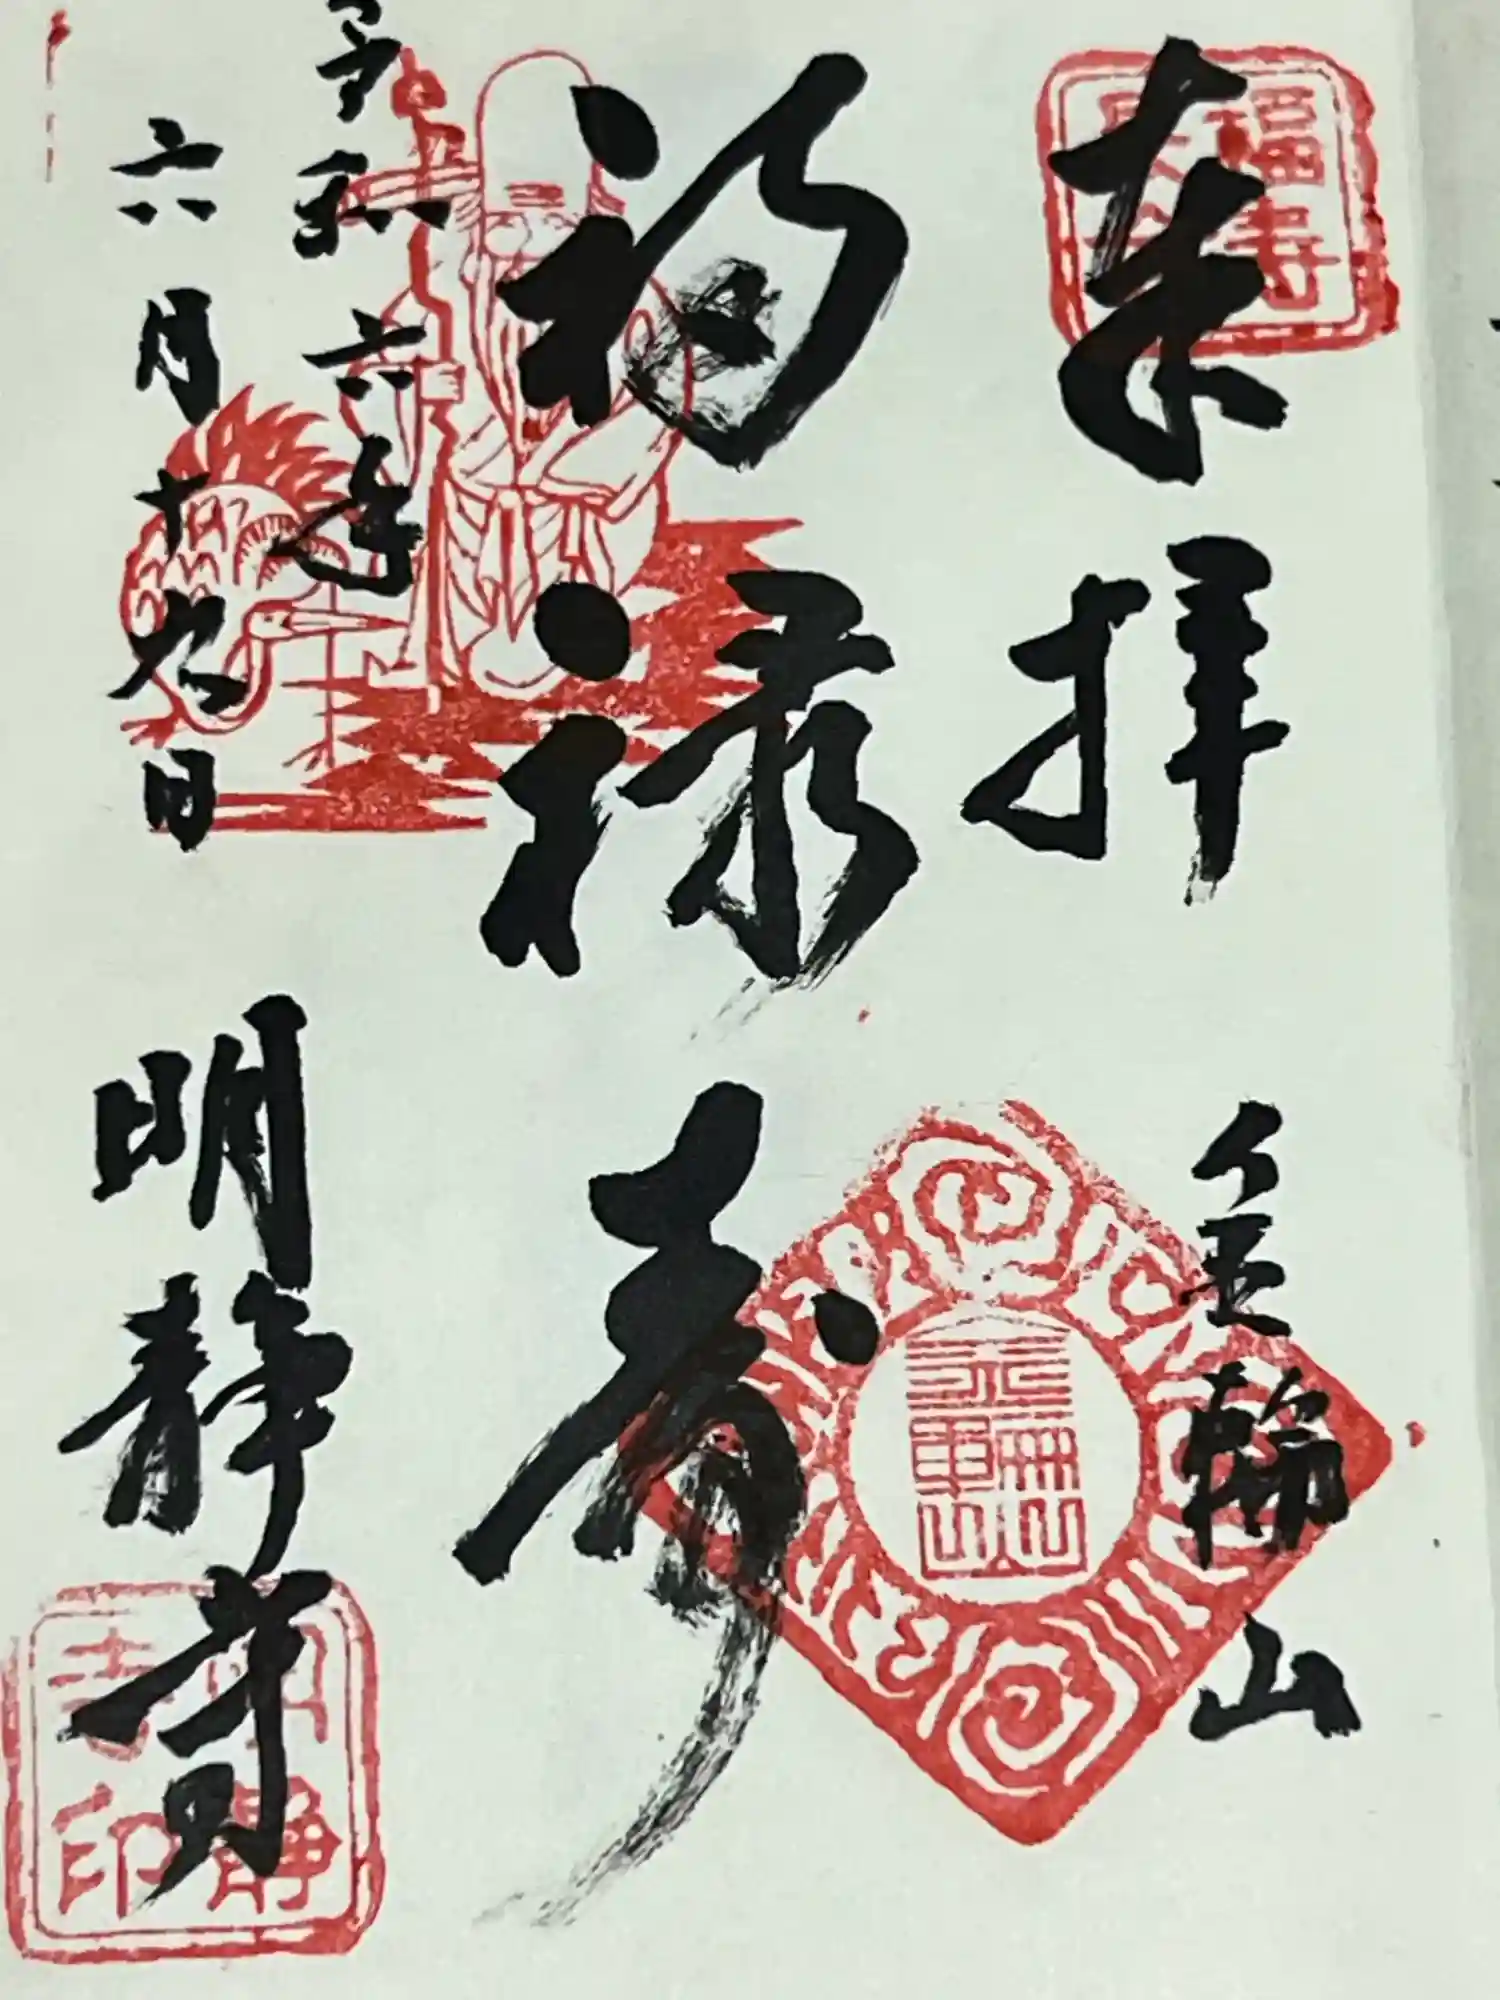 奉拝
金輪山
福禄寿
令和六年
六月十九日
明静寺
福寿
金輪山
明静
寺印